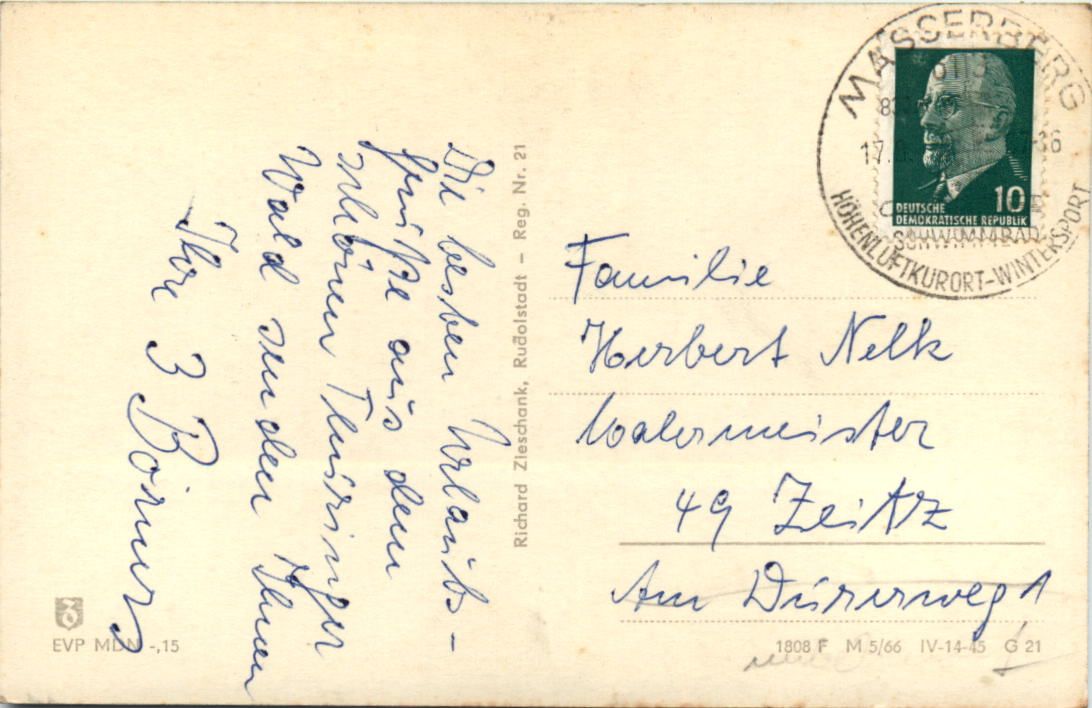 Die besten Urlaubs-
grüße aus dem
schönen Thüringer
Wald senden Ihnen
Ihre 3 Börners
Richard Zieschank, Rudolstadt – Reg. Nr. 21
MASSERBERG
6113
17.
-36
SCHWIMMBAD
HÖHENLUFTKURORT-WINTERSPORT
10
DEUTSCHE
DEMOKRATISCHE REPUBLIK
Familie
Herbert Nelk
Malermeister
49 Zeitz
Am Dürerweg 1
EVP MDN -,15
1808 F M 5/66 IV-14-45 G 21